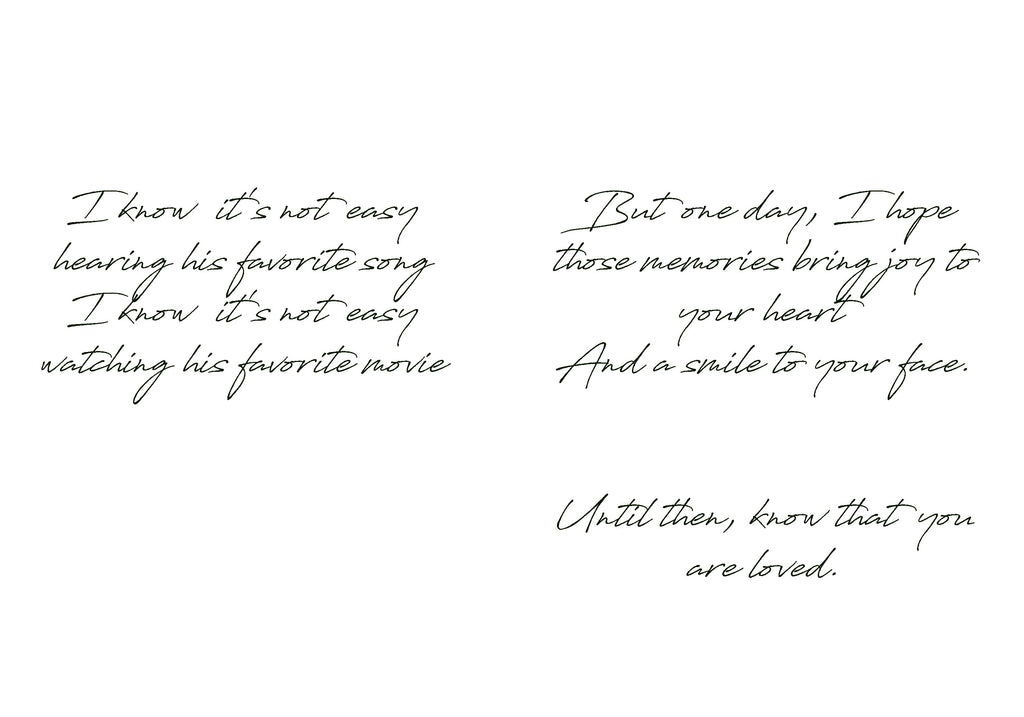 I know it's not easy
hearing his favorite song
I know it's not easy
watching his favorite movie
But one day, I hope
those memories bring joy to
your heart
And a smile to your face.
Until then, know that you
are loved.